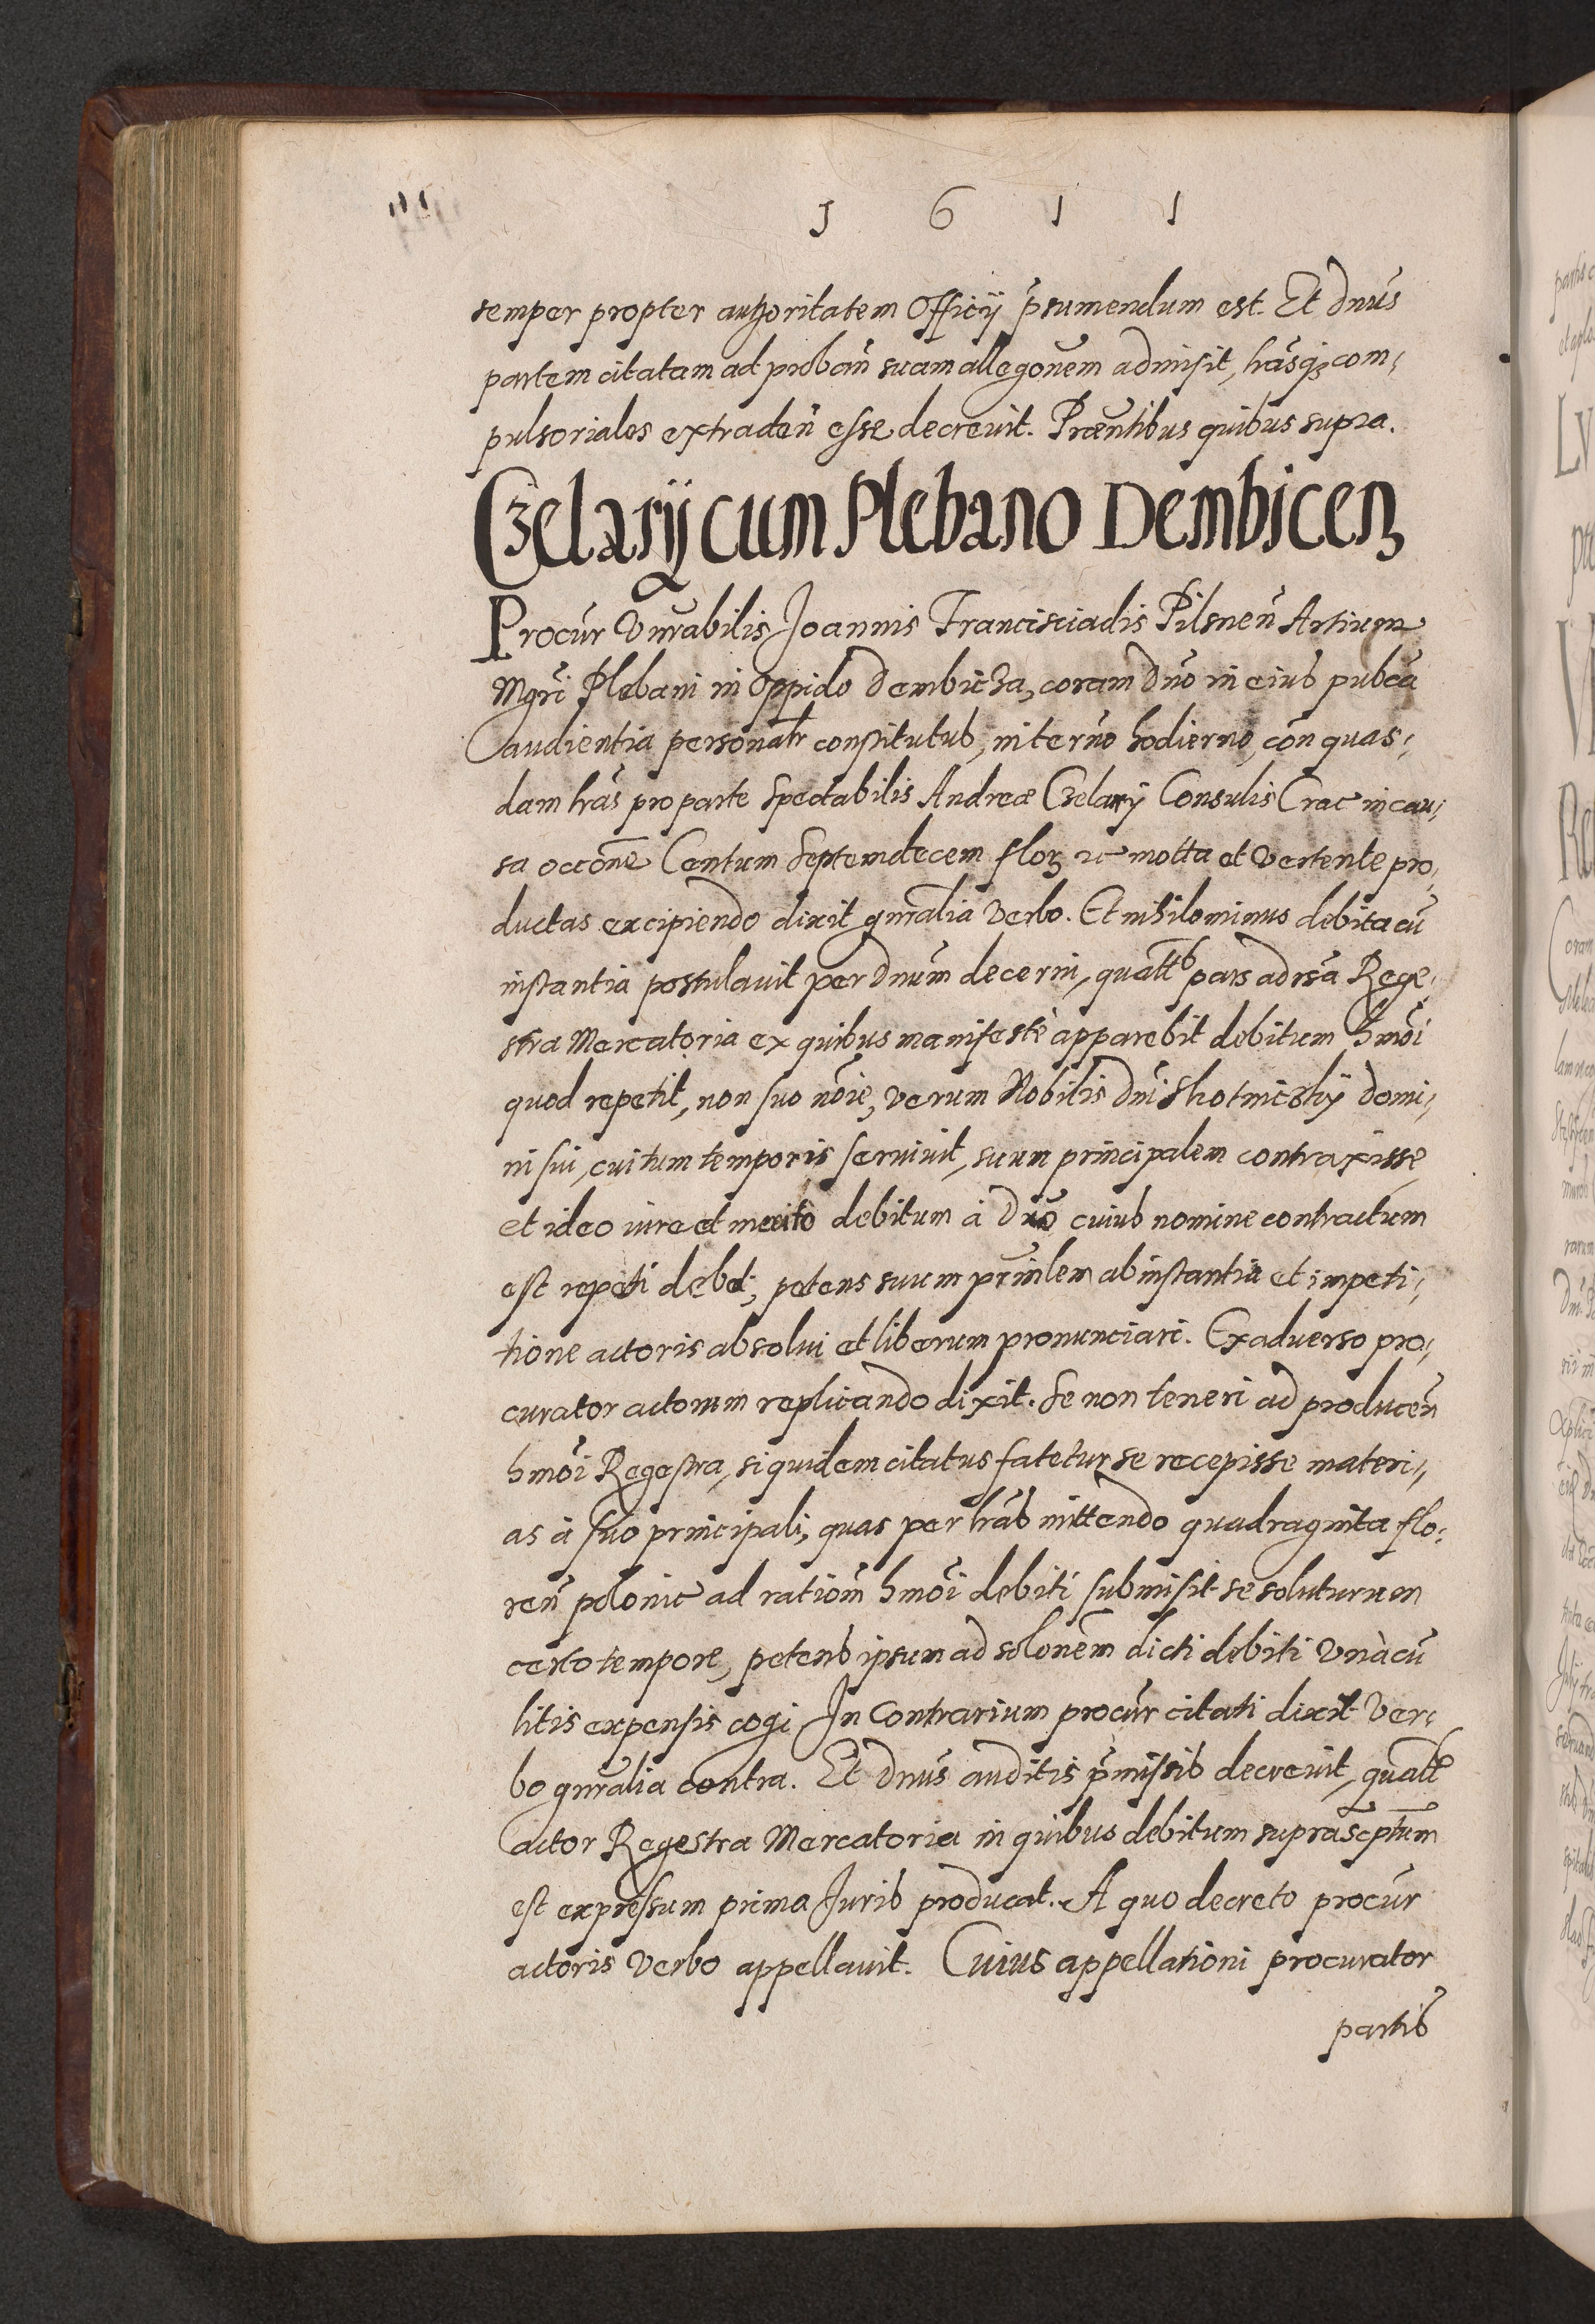 1 6 1 1
semper propter authoritatem Officij p̃sumendum est. Et dnũs
partem citatam ad probañ suam allegonẽm admisit, hr̃asq; com,
pulsoriales extradeñ esse decrevit. Præñtibus quibus supra.
Czelarij cum Plebano Dembicen
Procũr Vnr̃abilis Joannis Francisciadis Pilsneñ Artium
Mgr̃i Plebani in Oppido Dembicza, coram dnõ in eius pubcã
audientia personalr̃ constitutus, in ternõ hodierno, con̄ quas,
dam lr̃as pro parte Spectabilis Andreæ Czelarij Consulis Crac in cau,
sa occõne Centum Septemdecem flor. etc motta et vertente pro,
ductas excipiendo dixit gnr̃alia verbo. Et nihilominus debita cũ
instantia postulavit per dnũm decerni, quatt̃s pars adrsã Rege,
stra Mercatoria ex quibus manifestè apparebit debitum hmõi
quod repetit, non suo nõie, verum Nobilis Dnĩ Shotnicshÿ domi,
ni sui, cui tum temporis servivit, suum principalem contraxisse
et ideo iure et merito debitum à Dnõ cuius nomine contractum
est repeti debet; petens suum prĩnlem ab instantia et impeti,
tione actoris absolui et liberum pronunciari. Ex adverso pro,
curator actorum replicando dixit. Se non teneri ad produceñ
hmõi Regestra, siquidem citatus fatetur se recepisse materi,
as à suo principali, quas per lr̃as mittendo quadraginta flo,
reñ polonic ad ratiom̃ hmõi debiti submisit se soluturum
certo tempore, petens ipsum ad solonẽm dicti debiti vnà cũ
litis expensis cogi In Contrarium procũr citati dixit Ver,
bo gnr̃alia contra. Et Dnũs auditis p̃missis decrevit, quatt̃s
actor Regestra Mercatoria in quibus debitum suprasc̃ptum
est expressum prima Juris producat. A quo decreto procũr
actoris Verbo appellavit. Cuius appellationi procurator
partis